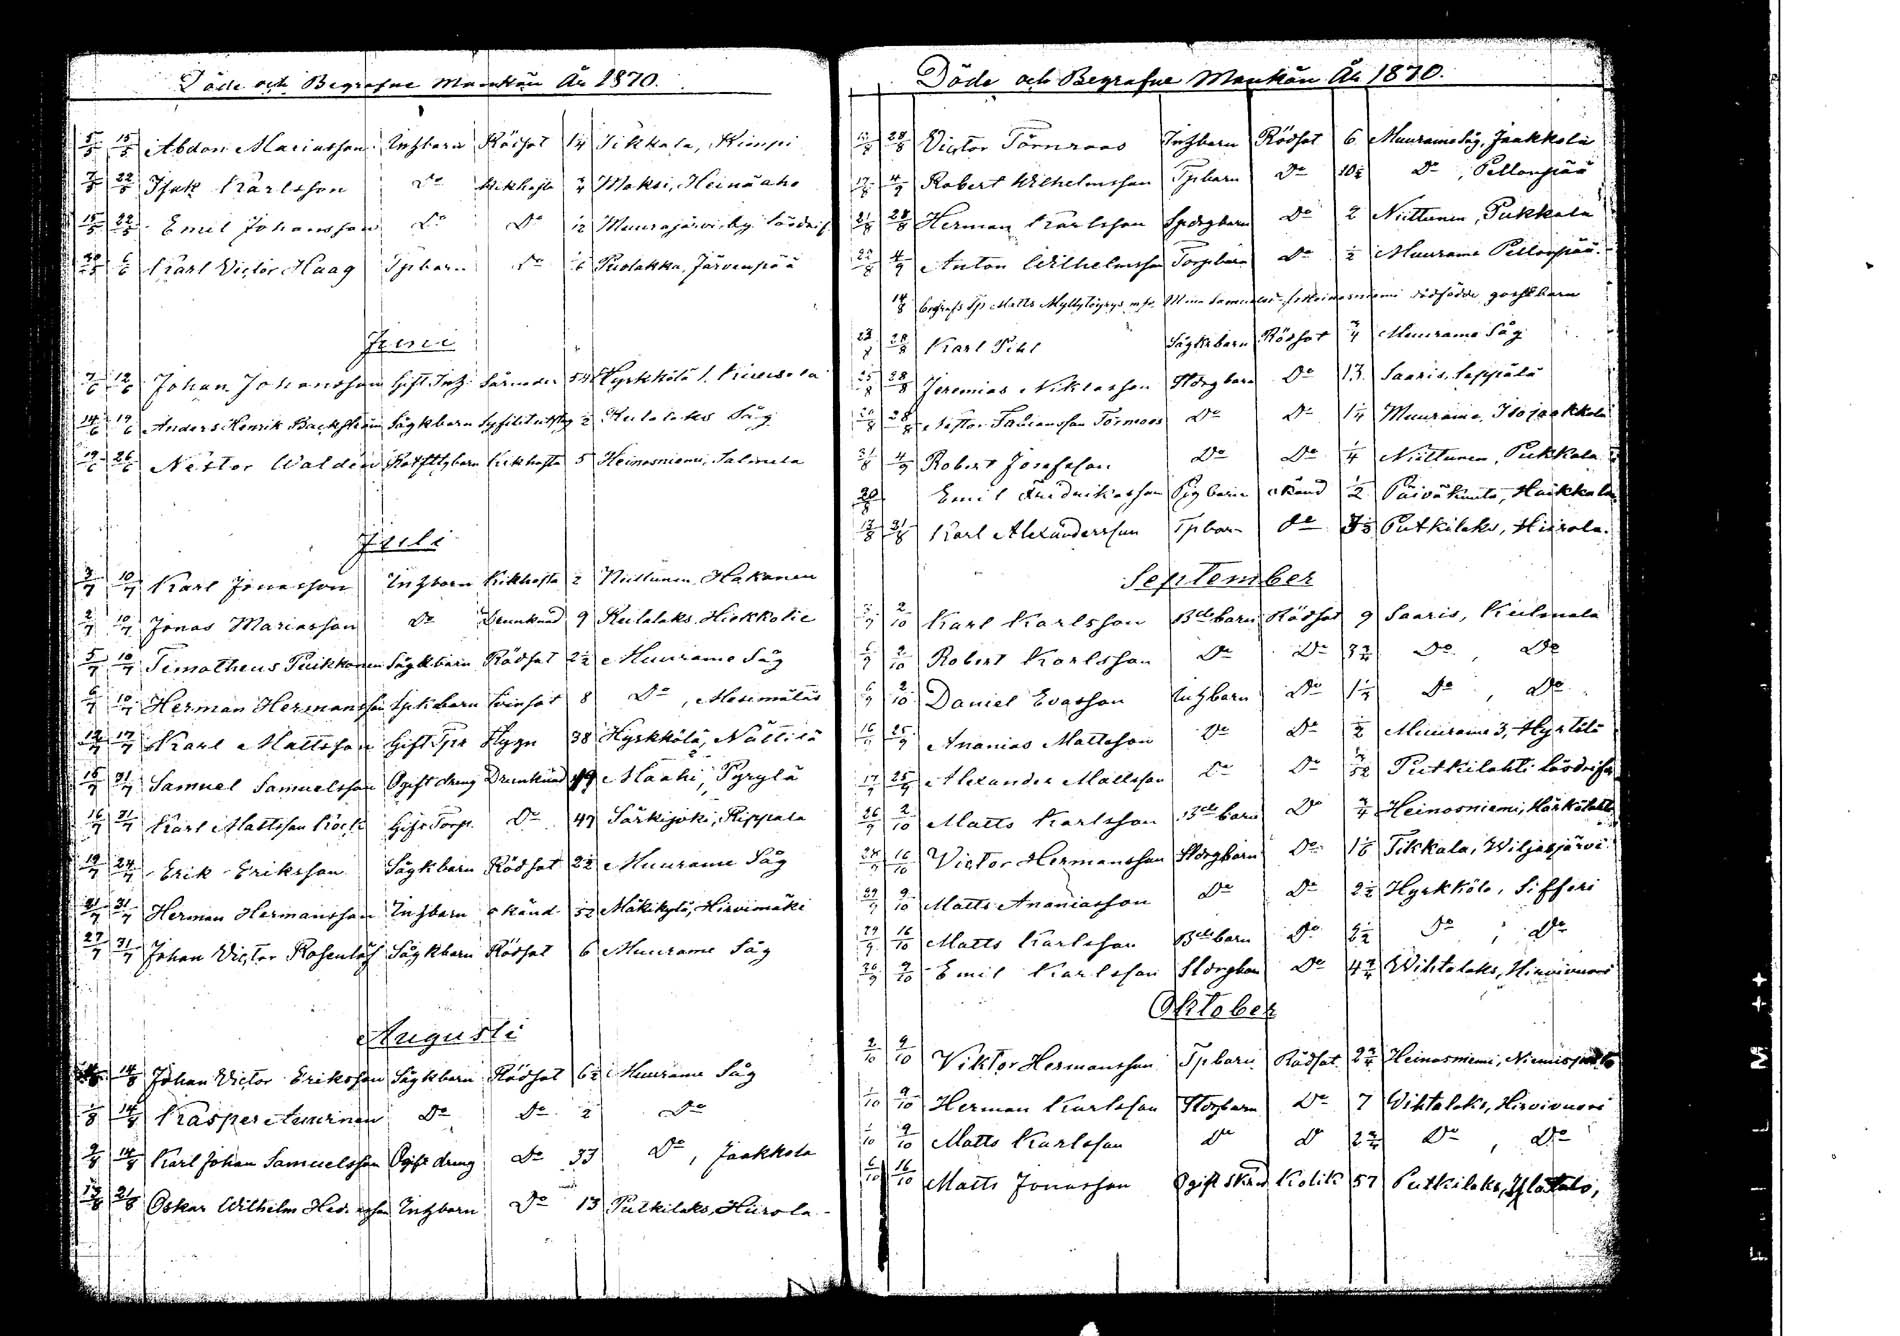 Döde och Begrafne Mankön År 1870.
5/5 15/5 Abdon Mariasson Inhbarn Rödsot 1/4 Tikkala, Kimpi
7/5 22/5 Isak Karlsson Do Kikhosta 3/4 Moksi, Heinäaho
15/5 22/5 Emil Johansson Do Do 1/12 Muurajärvi by
30/5 6/6 Karl Victor Haag Tpbarn Do 1/6 Puolakka, Järvenpää
Juni
7/6 12/6 Johan Johansson Gift Inh. 54 Hyrkkölä
14/6 19/6 Anders Henrik Backström Sågkbarn 1/2 Keulalaks Såg
19/6 26/6 Nestor Walden Kikhosta 5 Heinosniemi, Salmela
Juli
3/7 10/7 Karl Jonasson Inhbarn Kikhosta 2 Niittunen, Hakanen
2/7 10/7 Jonas Mariasson Do Drunknad 9 Keulalaks
5/7 10/7 Timotheus Puikkonen Sågkbarn Rödsot 2 1/2 Muurame Såg
6/7 10/7 Herman Hermansson 8 Do, Mesimäläs
12/7 17/7 Karl Mattsson Gift Tpr Flygn 38 Hyrkkölä, Nättilä
15/7 31/7 Samuel Samuelsson Ogift dreng Drunknad 19 Maahi, Pyrylä
16/7 31/7 Karl Mattsson Gift Torp. Do 47 Särkijoki, Rippala
19/7 24/7 Erik Eriksson Sågkbarn Rödsot 2 1/2 Muurame Såg
21/7 31/7 Herman Hermansson Inhbarn okänd Mäkikylä, Hirvimäki
27/7 31/7 Johan Victor Rosenlöf Sågkbarn Rödsot 6 Muurame Såg
Augusti
14/8 Johan Victor Eriksson Sågkbarn Rödsot 6 1/2 Muurame Såg
1/8 14/8 Kasper Do Do 2 Do
9/8 14/8 Karl Johan Samuelsson Ogift dreng Do 33 Do, Jaakkola
13/8 21/8 Oskar Wilhelm Inhbarn Do 13 Putkilaks, Hiirola
Döde och Begrafne Mankön År 1870.
28/8 Victor Törnroos Inhbarn Rödsot 6 Muurame Såg, Jaakkola
17/8 4/9 Robert Wilhelmsson Tpbarn Do 10 1/2 Do, Pellonpää
21/8 28/8 Herman Karlsson Do 2 Niittunen, Pukkala
22/8 4/9 Anton Wilhelmsson Torpbarn Do 1/2 Muurame Pellonpää
14/8 begrafs Tp Matts dödfödde gossebarn
23/8 28/8 Karl Pihl Sågkbarn Rödsot 3/4 Muurame Såg
25/8 28/8 Jeremias Niklasson Do 13 Saaris, Seppälä
28/8 Nestor Do Do 1 1/4 Muurame, Isojaakkola
31/8 4/9 Robert Josefsson Do Do 1/4 Niittunen, Pukkala
20/8 Emil Fredrikasson Pigbarn okänd 1/2 Päiväkunta, Haikkala
13/8 31/8 Karl Alexandersson Tpbarn do Putkilaks, Hiirola.
September
2/10 Karl Karlsson Bdebarn Rödsot 9 Saaris, Keilmala
2/10 Robert Karlsson Do Do 3 3/4 Do, Do
6/9 2/10 Daniel Evasson Inhbarn Do Do, Do
16/9 25/9 Ananias Mattsson Do Do 1/2 Muurame 3, Hyrtölä
17/9 25/9 Alexander Mattsson Do Do Putkilahti
26/9 2/10 Matts Karlsson Bdebarn Do 3/4 Heinosniemi,
28/9 16/10 Victor Hermansson Do 1 1/6 Tikkala, Wiljasjärvi
29/9 9/10 Matts Ananiasson Do Do 2 1/2 Hyrkkölä, Sifferi
29/9 16/10 Matts Karlsson Bdebarn Do Do, Do
30/9 9/10 Emil Karlsson Do 4 3/4 Wihtalaks, Hirvivuori
Oktober
2/10 9/10 Viktor Hermansson Tpbarn Rödsot 2 3/4 Heinosniemi,
1/10 9/10 Herman Karlsson Do 7 Wihtalaks, Hirvivuori
1/10 9/10 Matts Karlsson Do Do 2 3/4 Do, Do
6/10 16/10 Matts Jonasson Ogift Kolik 57 Putkilaks, Ylätalo,
FILM ++